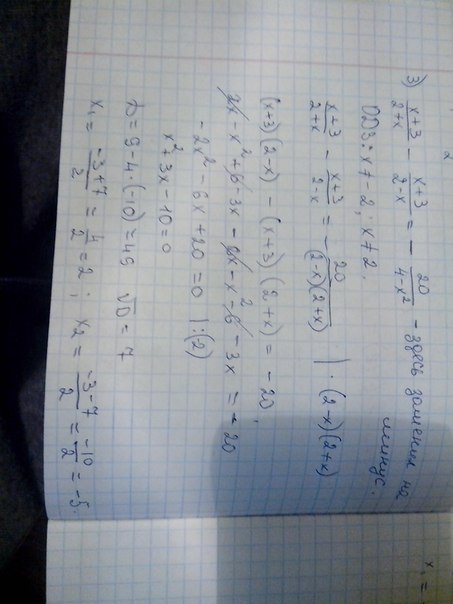 3) (x+3)/(2+x) - (x+3)/(2-x) = - 20/(4-x²) - здесь заменили на
минус.
ОДЗ: x ≠ -2; x ≠ 2.
(x+3)/(2+x) - (x+3)/(2-x) = - 20/((2-x)(2+x)) | · (2-x)(2+x)
(x+3)(2-x) - (x+3)(2+x) = -20;
2x - x² + 6 - 3x - 2x - x² - 6 - 3x = -20
-2x² - 6x + 20 = 0 |:(2)
x² + 3x - 10 = 0
D = 9 - 4·(-10) = 49 √D = 7
x₁ = (-3+7)/2 = 4/2 = 2; x₂ = (-3-7)/2 = -10/2 = -5.
x₁ =